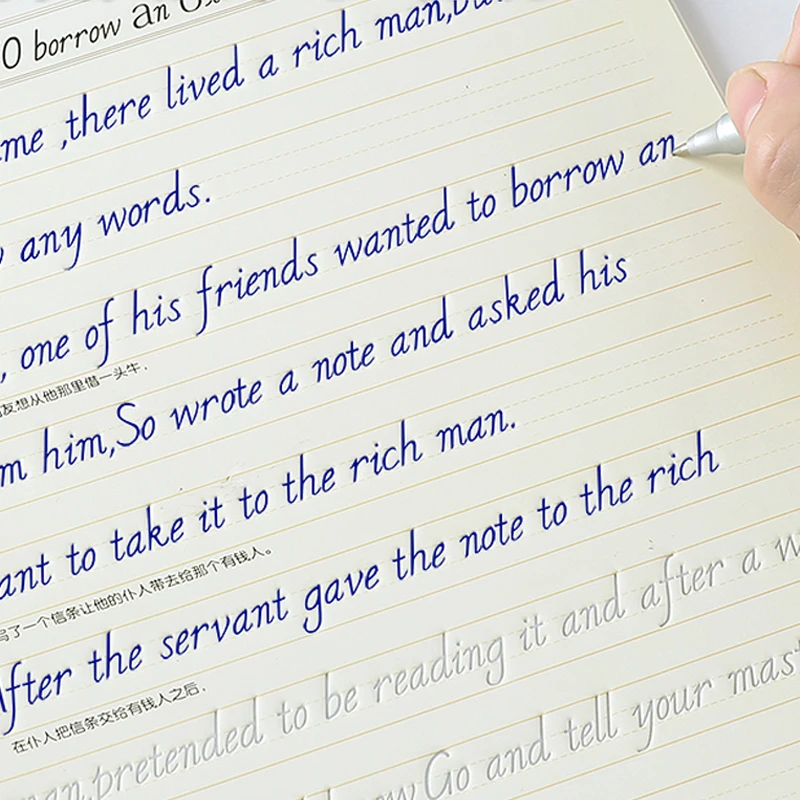 O borrow an
me ,there lived a rich man,
any words.
, one of his friends wanted to borrow an
友想从他那里借一头牛.
m him,So wrote a note and asked his
ant to take it to the rich man.
写了一个信条让他的仆人带去给那个有钱人。
After the servant gave the note to the rich
在仆人把信条交给有钱人之后.
man,pretended to be reading it and after a w
ow Go and tell your mast